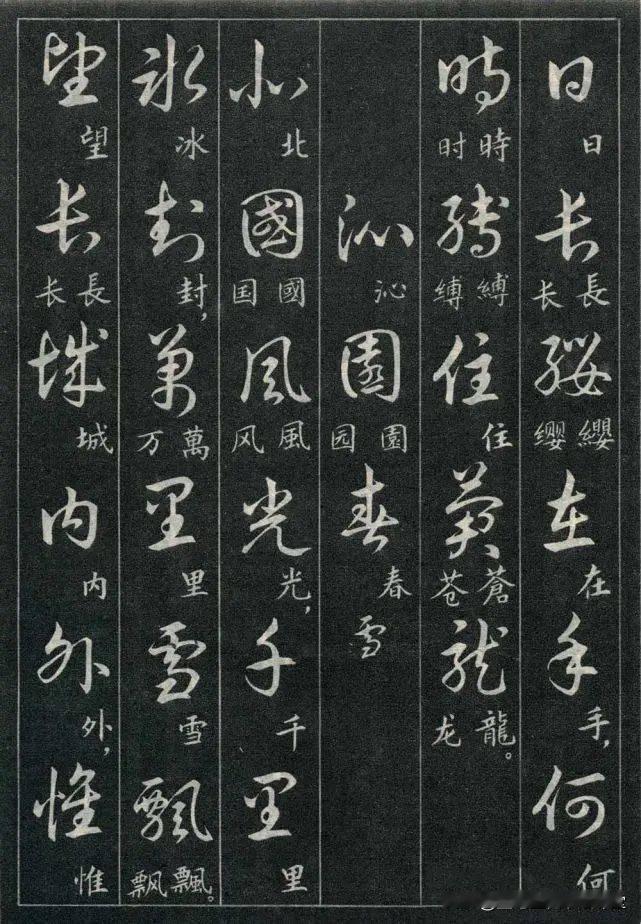 日 日 长 長 长 缨 纓 缨 在 在 手 手, 何 何
時 時 时 縛 縛 缚 住 住 蒼 蒼 苍 龍 龍。 龙
沁 沁 園 園 园 春 春 雪
北 北 國 國 国 風 風 风 光 光, 千 千 里 里
冰 冰 封 封, 萬 萬 万 里 里 雪 雪 飄 飄。 飘
望 望 长 長 长 城 城 内 内 外 外, 惟 惟